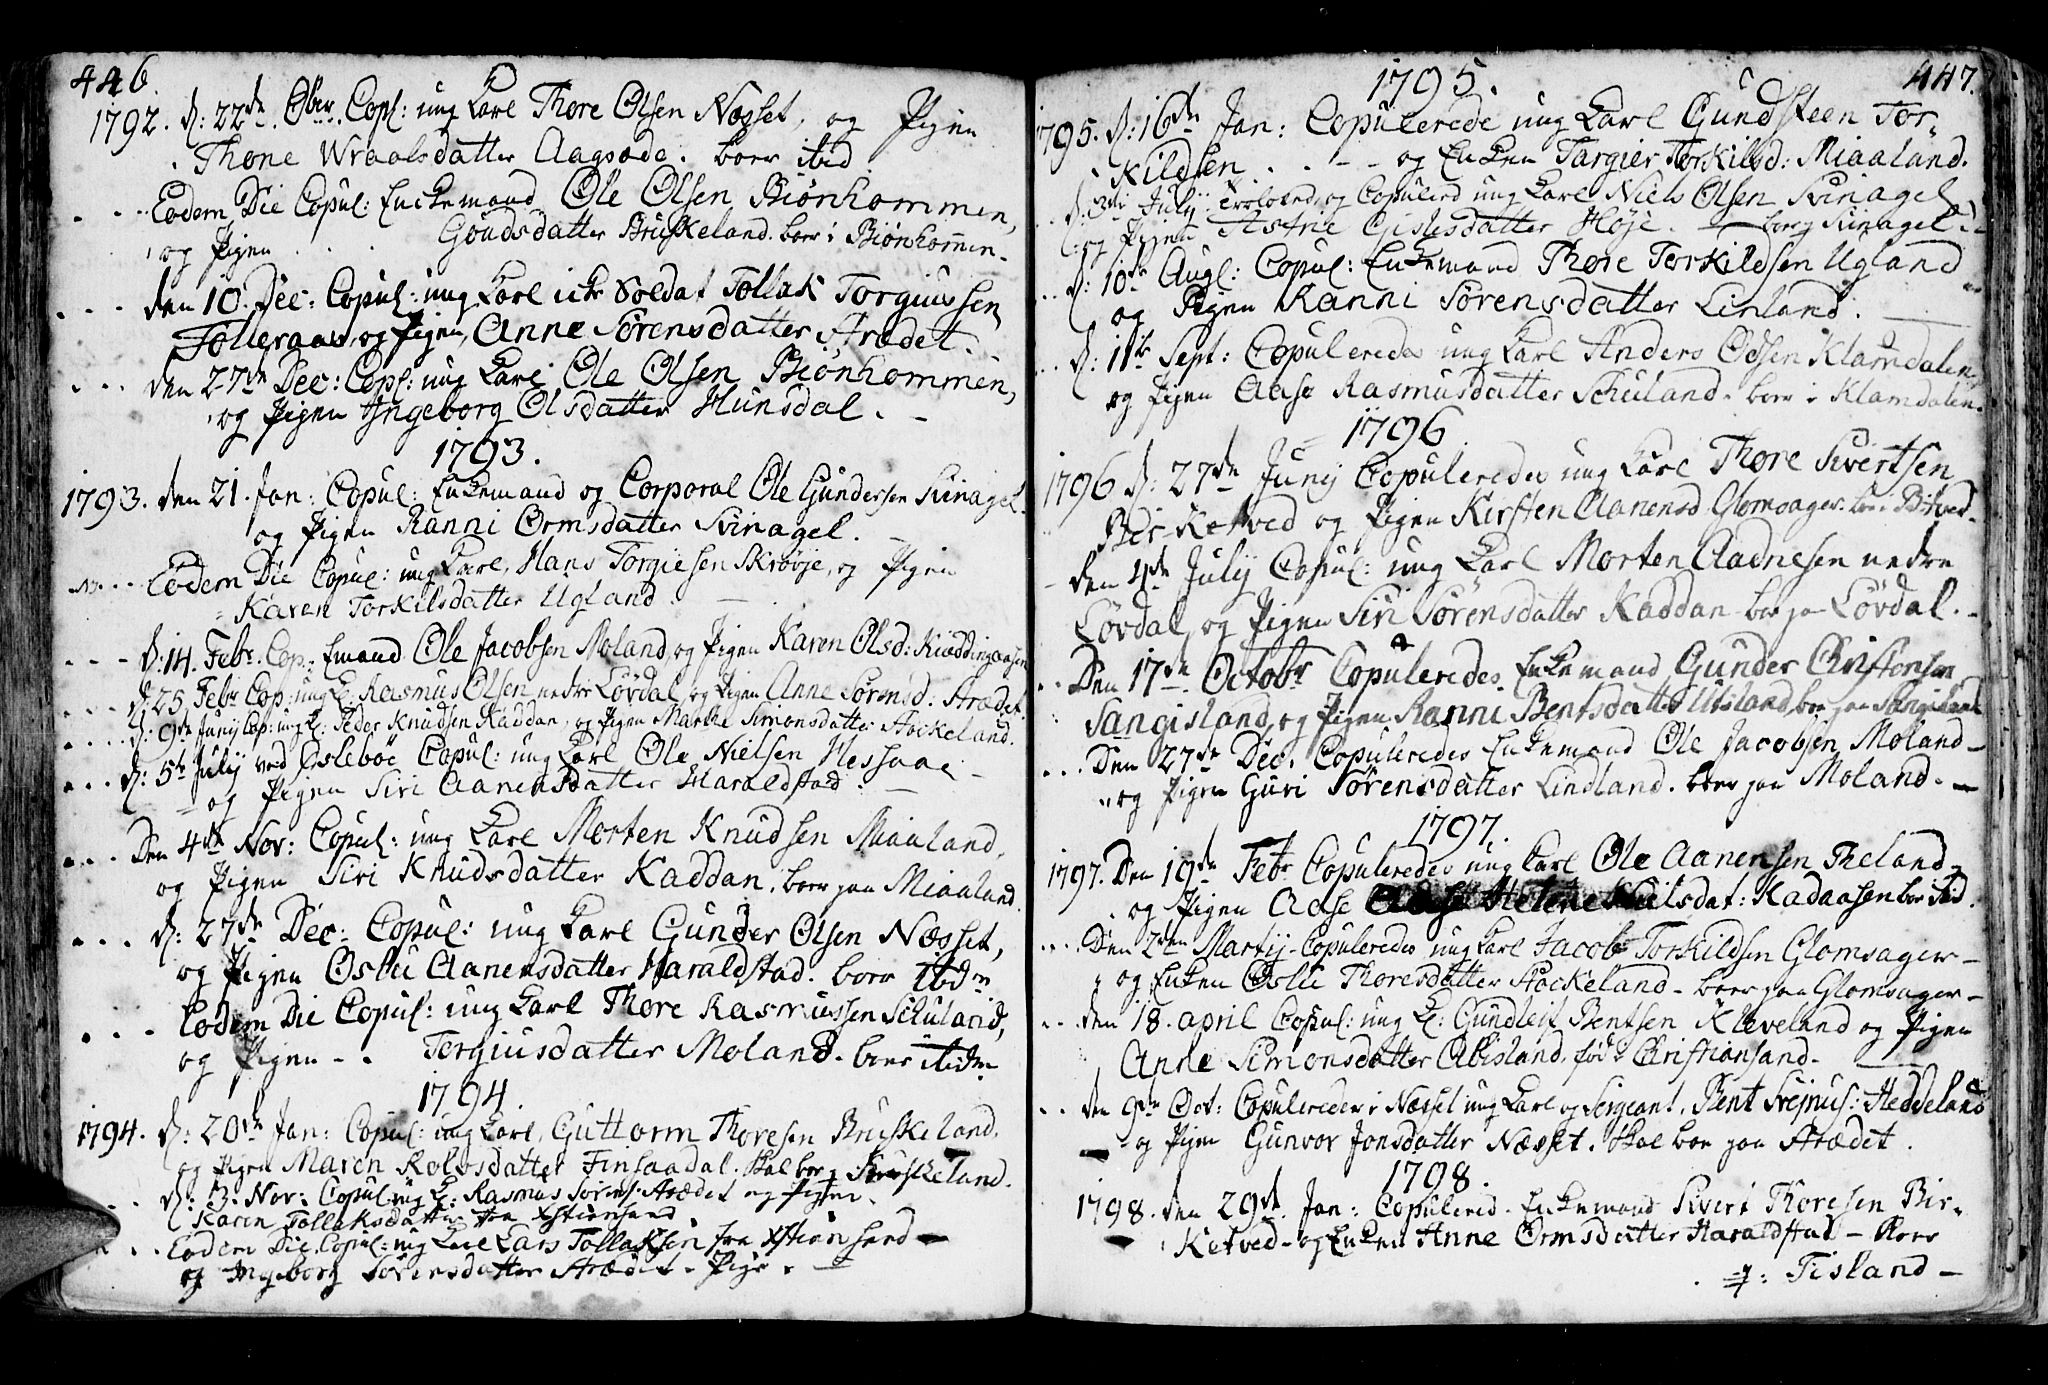 446.
1792. d: 22de Obr. Copl: ung Karl Thore Olsen Næsset, og Pigen
Thone Wraalsdatter Aagsøde. boer ibid
Eodem Die Copul: Enckemand Ole Olsen Biønhommen,
og Pigen . . Goudsdatter Bruskeland. boer i Biønhommen.
den 10. Dec: Copul: ung Karl Soldat Tollak Torgiussen
Tolleraas og Pigen, Anne Sørensdatter Strædet.
den 27de Dec: Copl: ung Karl Ole Olsen Biønhommen,
og Pigen Ingeborg Olsdatter Hunsdal.
1793.
1793. den 21. Jan: Copul: Enkemand og Corporal Ole Gundersen Svinagel.
og Pigen Ranni Ormsdatter Svinagel.
Eodem Die Copul: ung Karl, Hans Torgiesen Skrøvje, og Pigen
Karen Torkilsdatter Ugland.
d: 14. Febr. Cop: Emand Ole Jacobsen Moland, og Pigen Karen Olsd:
d: 25. Febr Cop: ung K: Rasmus Olsen nedre Løvdal, og Pigen Anne Sørensd: Strædet.
d: 9de Junij Cop: ung K: Peder Knudsen Kaddan, og Pigen Marthe Simonsdatter Stockeland.
d: 5te July ved Øslebøe Copul: ung Karl Ole Nielsen Hessaae
og Pigen Siri Aanensdatter Haraldstad.
Den 4de Nov: Copul: ung Karl Morten Knudsen Miaaland,
og Pigen Siri Knudsdatter Kaddan. boer paa Miaaland.
d: 27de Dec: Copul: ung Karl Gunder Olsen Næsset,
og Pigen Oslu Aanensdatter Haraldstad. boer ibdm
Eodem Die Copul: ung Karl Thore Rasmussen Schuland,
og Pigen - . Torgiusdatter Moland. boer ibidm
1794.
1794. d: 20de Jan: Copul: ung Karl, Guttorm Thoresen Bruskeland,
og Pigen Maren Rolvsdatter Finsaadal. Skal boe p Bruskeland.
d: 3. Nov: Copul: ung K: Rasmus Sørens: Strædet og Pigen
Karen Tollaksdatter fra Xstiansand
Eodem Die Copul: ung Karl Lars Tollaksen fra Xstiansand
og Ingeborg Sørensdatter Strædet. Pige.
447.
1795.
1795. d: 16de Jan: Copulerede ung Karl Gundsteen Tor-
kildsen . . - - og Enken Targier Torkilsd: Miaaland.
d: 3de July Copulerd ung Karl Niels Olsen Svinagel,
og Pigen Astrie Gislesdatter Høje. Svinagel.
d: 10de Augl: Copul: Enkemand Thore Torkildsen Ugland
og Pigen Ranni Sørensdatter Linland.
d: 11te Sept: Copuleredes ung Karl Anders Odsen Klamdalen,
og Pigen Aase Rasmusdatter Schuland. boer i Klamdalen.
1796
1796 d: 27de Junij Copuleredes ung Karl Thore Sivertsen
Bir-Ketved og Pigen Kirsten Aanensd Glomsager.
den 4de July Copul: ung Karl Morten Aadnesen nedre
Løvdal, og Pigen Siri Sørensdatter Kaddan boe paa Løvdal.
Den 17de Octobr Copuleredes Enkemand Gunder Christensen
Sangisland, og Pigen Ranni Bentsdatter Usland, boe paa Sangisland
Den 27de Dec. Copuleredes Enkemand Ole Jacobsen Moland
og Pigen Guri Sørensdatter Lindland. boer paa Moland.
1797.
1797. Den 19de Febr Copuleredes ung Karl Ole Aanensen Theland
og Pigen Aase Kadaasen boe ibid.
Den 2den Martij Copuleredes ung Karl Jacob Torkildsen Glomsager
og Enken Oslu Thoresdatter Stockeland - boer paa Glomsager
den 18. april Copul: ung K: Gundleif Bentsen Kleveland og Pigen
Anne Simonsdatter Abisland, fød i Christiansand.
den 9de Oct: Copuleredes i Næsset ung Karl og Sergeant, Bent Heddeland
og Pigen Gunvor Jonsdatter Næsset. Skal boe paa Strædet.
1798.
1798. den 29de Jan: Copulered. Enkemand Sivert Thoresen Bir-
Ketved - og Enken Anne Ormsdatter Haraldstad - Boer
Tisland